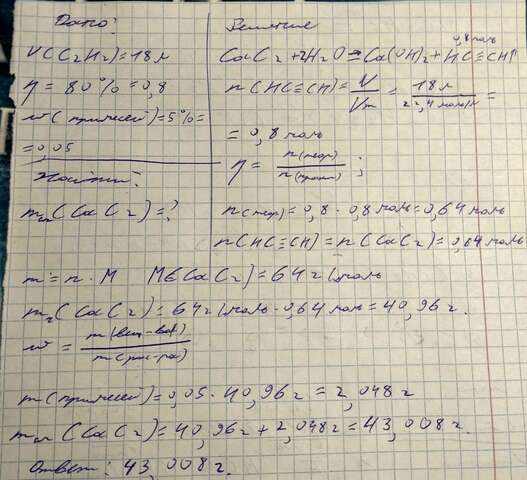 Дано:
V(C2H2)=18л
η = 80% = 0,8
w(примесей)=5%=
=0,05
Найти:
m(CaC2)=?
Решение
0,8 моль
CaC2 + 2H2O = Ca(OH)2 + HC≡CH↑
n(HC≡CH) = V/Vm = 18л/22,4 моль/л =
= 0,8 моль
η = n(теор)/n(практ) ;
n(теор) = 0,8 · 0,8 моль = 0,64 моль
n(HC≡CH) = n(CaC2) = 0,64 моль
m = n · M M(CaC2) = 64 г/моль
m(CaC2) = 64 г/моль · 0,64 моль = 40,96 г.
w = m(вещ-ва)/m(рас-ра)
m(примесей) = 0,05 · 40,96 г = 2,048 г
m(CaC2) = 40,96 г + 2,048 г = 43,008 г.
Ответ: 43,008 г.